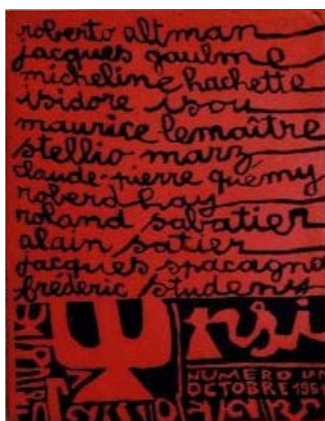 roberto altman
jacques gaulme
micheline hachette
isidore isou
maurice lemaître
stellio marz
claude-pierre quémy
roberd hay
roland sabatier
alain satier
jacques spacagna
frédéric studeny
NUMERO UN
OCTOBRE 1964